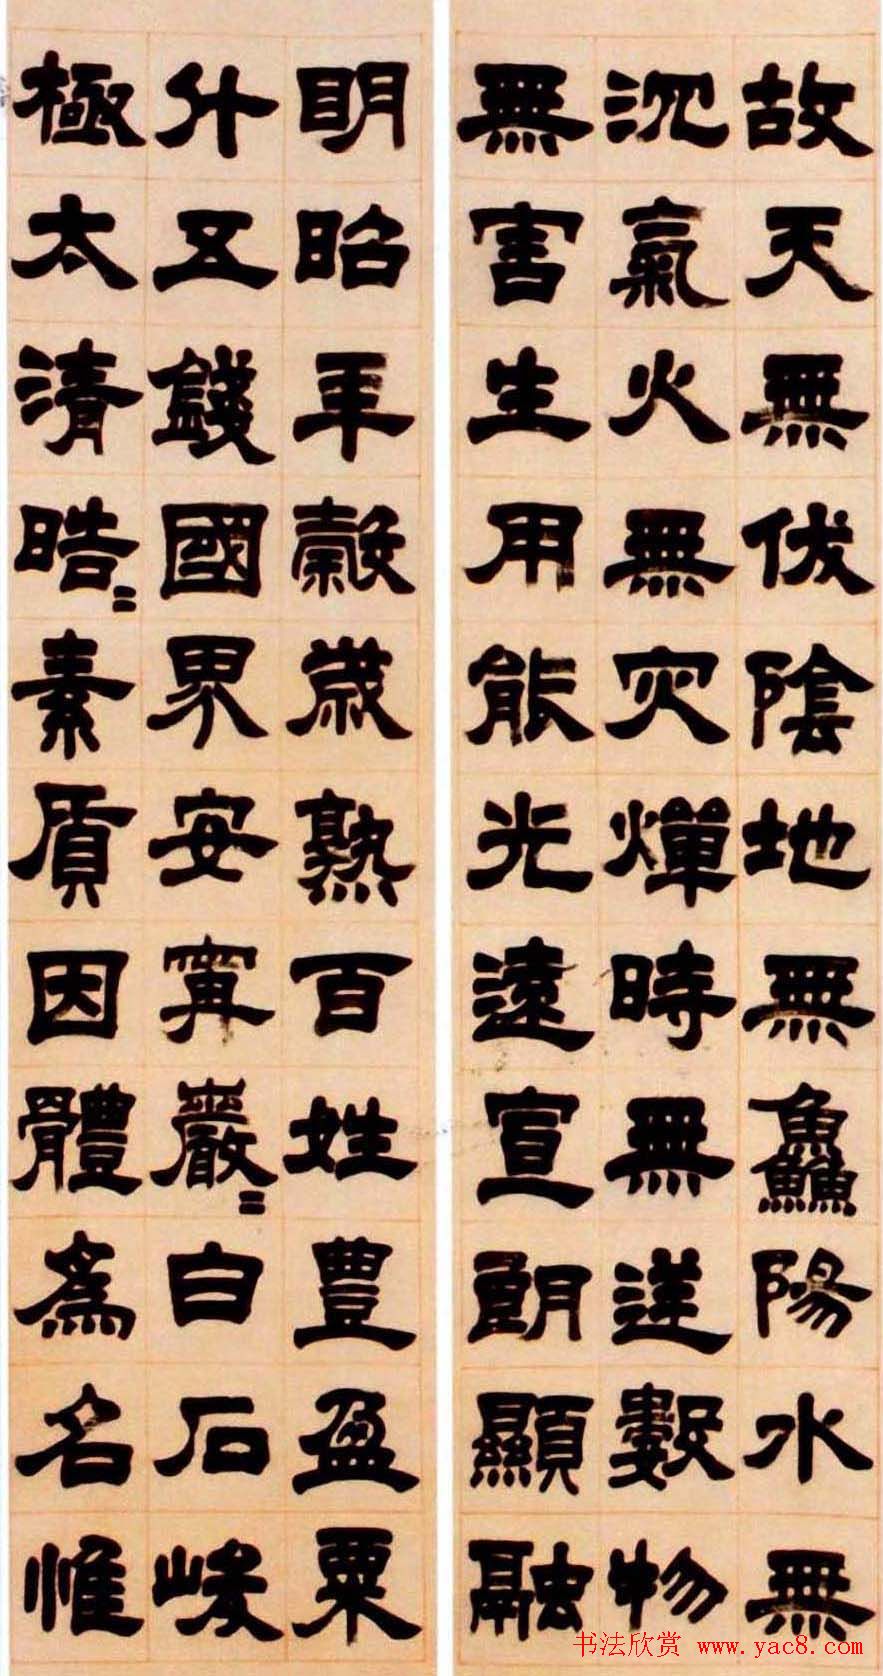 故天無伏陰地無鱻陽水無
沉氣火無灾燀時無逆數物
無害生用能光遠宣朗顯融
明昭年穀歲熟百姓豐盈粟
升五錢國界安寧巖〻白石峻
極太清皓〻素質因體為名惟
书法欣赏 www.yac8.com